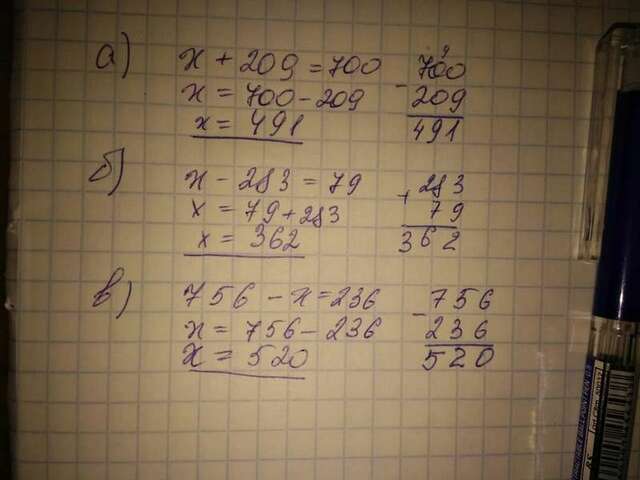 а) x + 209 = 700
x = 700 - 209
x = 491
9
700
- 209
491
б) x - 283 = 79
x = 79 + 283
x = 362
+ 283
79
362
в) 756 - x = 236
x = 756 - 236
x = 520
- 756
236
520